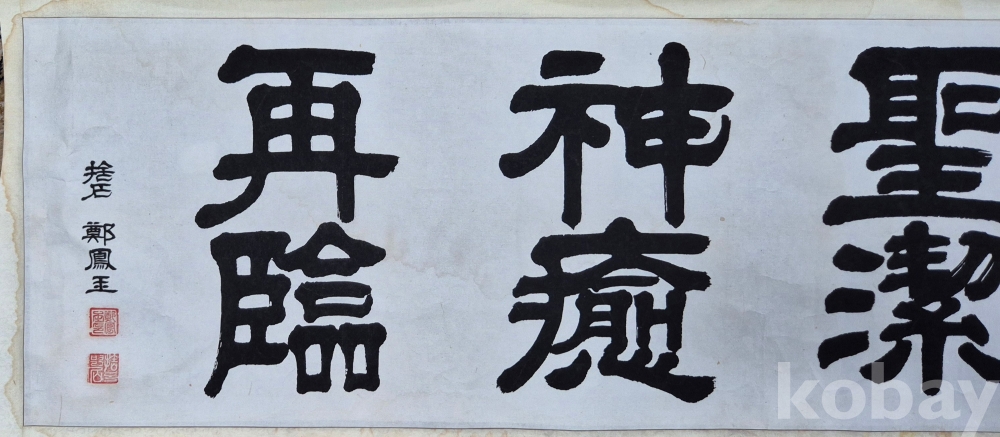 聖潔
神癒
再臨
捨石 鄭鳳玉
kobay